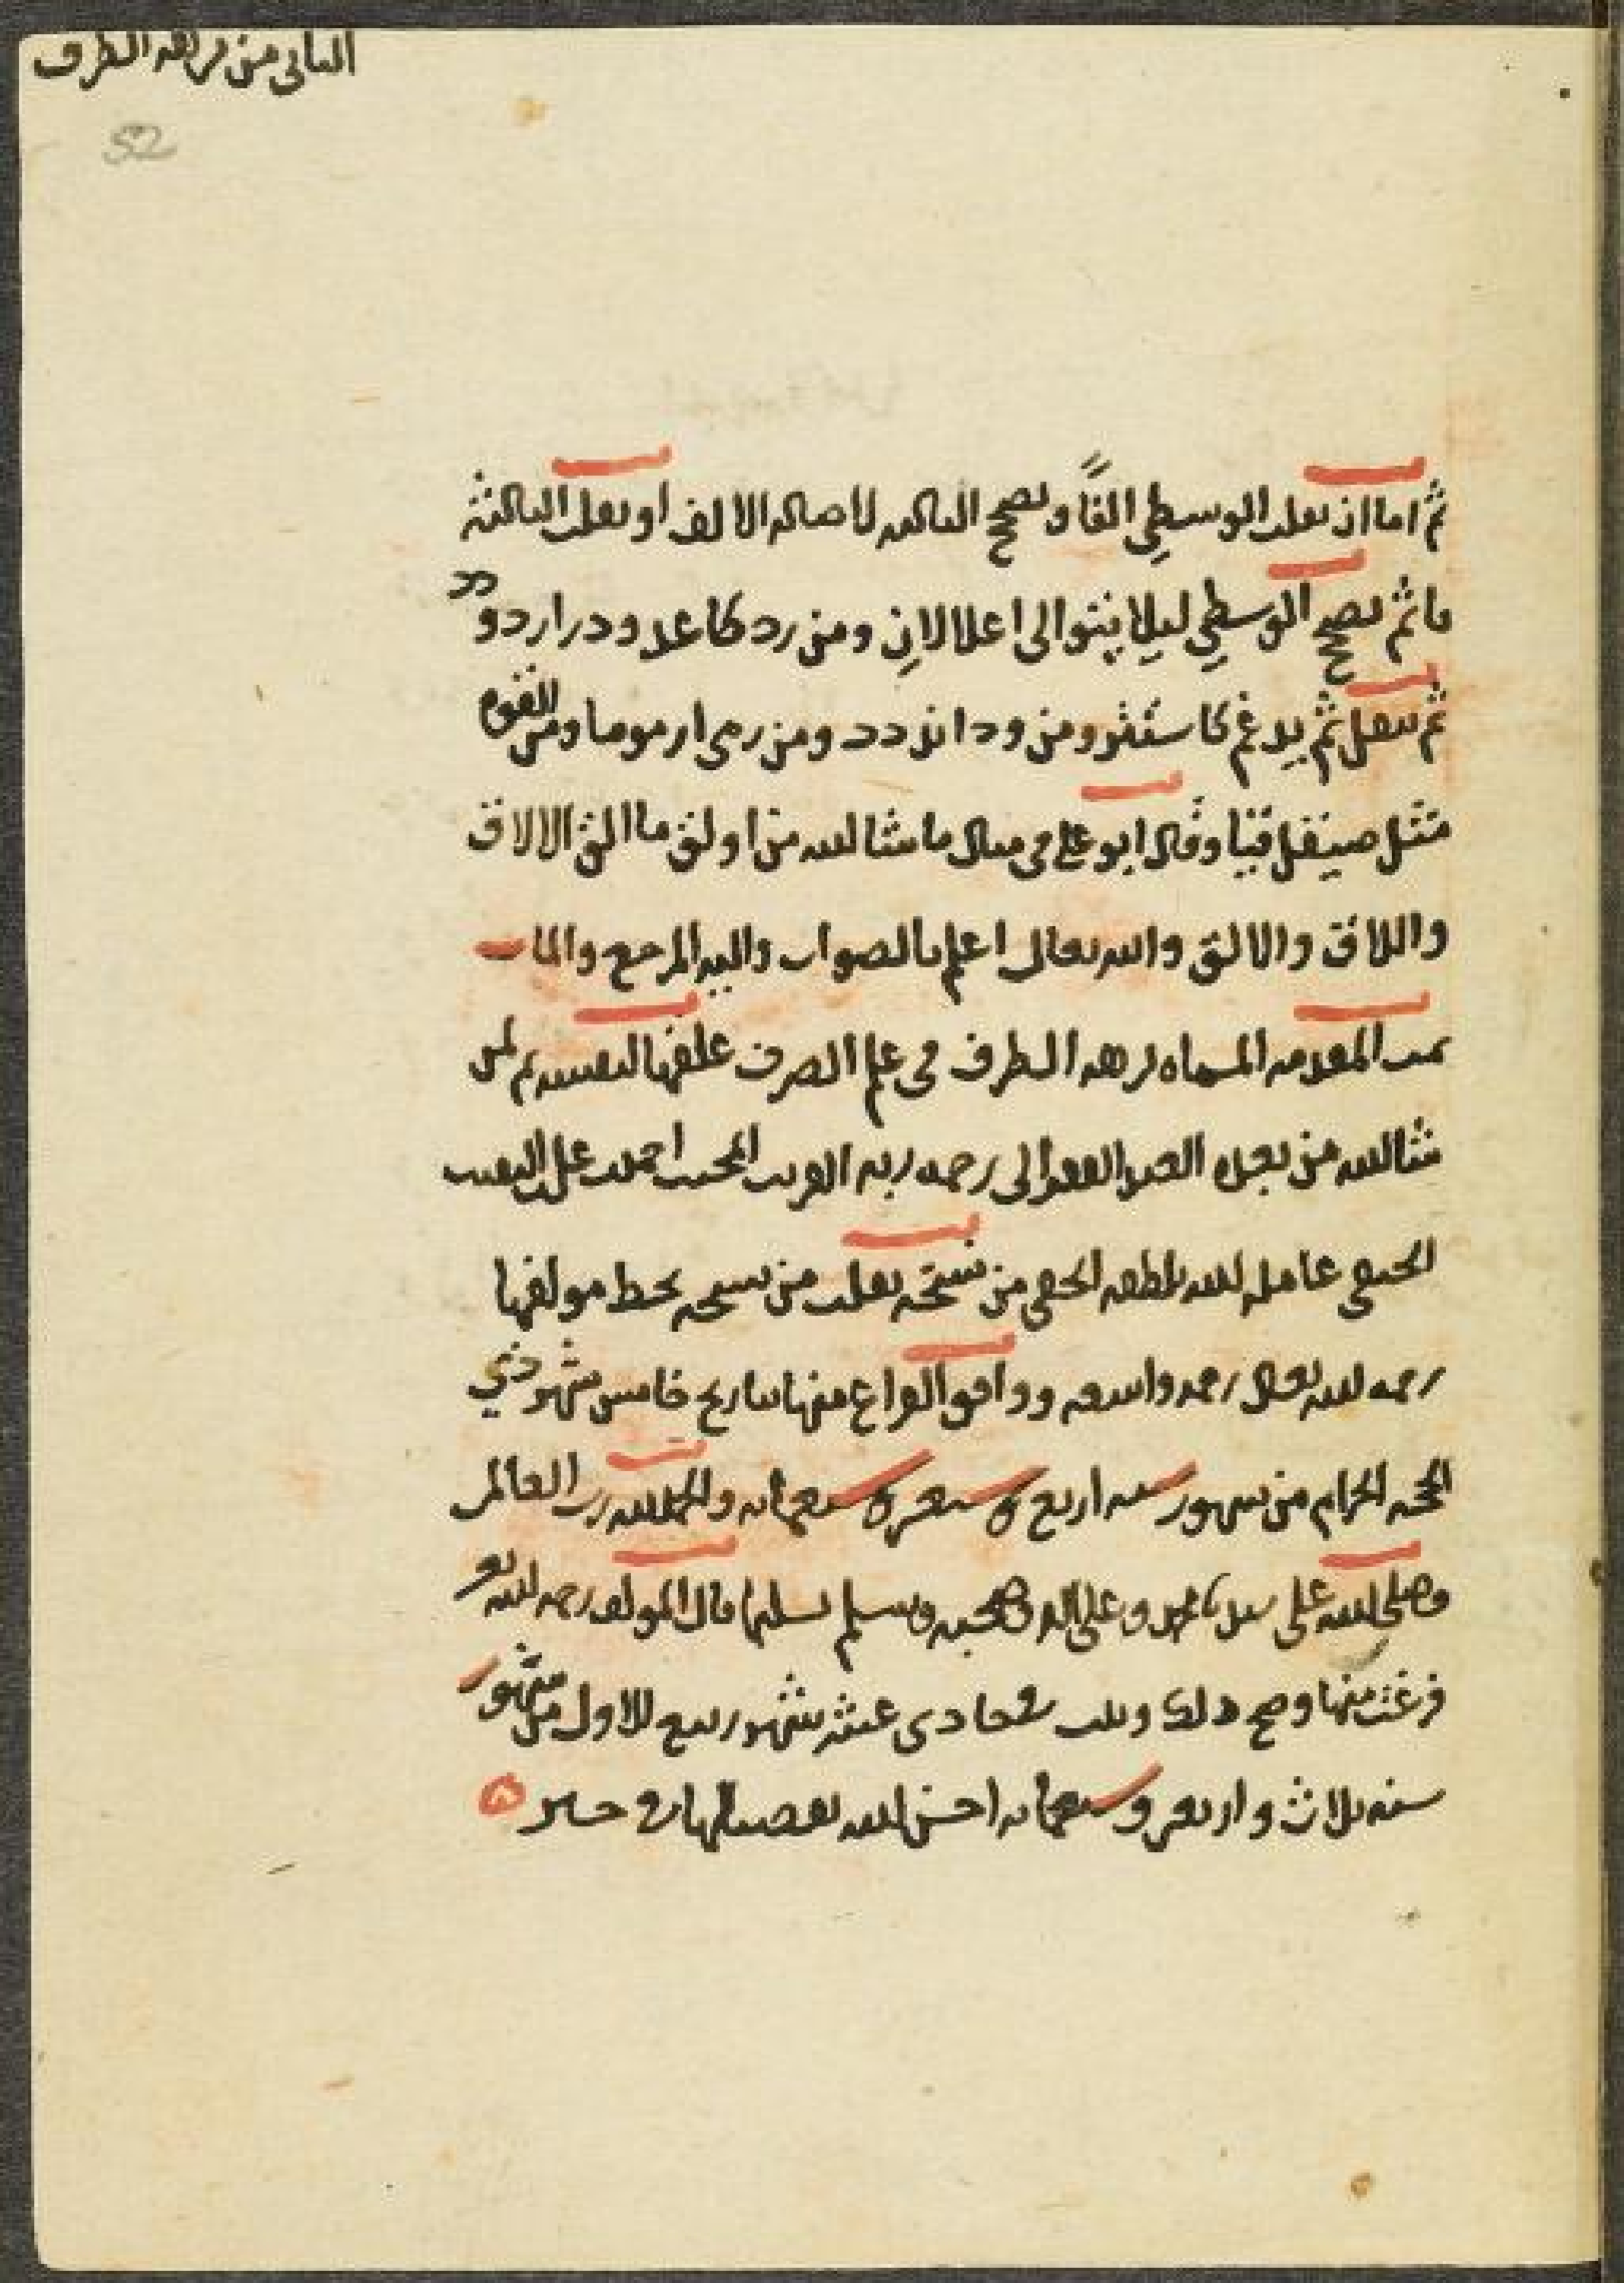 الثاني من نزهه الطرف
52
ثم اما ان تقلب الوسطي الفا وتصح الثالثه لاصاله الالف او تقلب الثالثة
ثم تصح الوسطي ليلا يتوالى اعلالان ومن رد كاغدودن اردودد
ثم تنقل ثم يدغم كاستتر ومن ودانردد ومن رمى ارموما ومن القوه
وقال ابو علي في مثال ماشا الله من اولق ما الق الالاق
واللاق والالق والله تعالى اعلم بالصواب واليه المرجع والماب
تمت المقدمه المسماه نزهه الطرف في علم الصرف علقها لنفسه ثم لمن
شا الله من بعده العبد الفقير الى رحمه ربه القريب المجيب احمد
الحنفي عامله الله بلطفه الخفي من نسخه نقلت من نسخه بخط مولفها
رحمه الله تعالى رحمه واسعه ووافق الفراغ منها بتاريخ خامس شهر ذي
الحجه الحرام من شهور سنه اربع وسبعمائه والحمد لله رب العالمين
وصلى الله على سيدنا محمد وعلى اله وصحبه وسلم تسليما قال المولف رحمه الله تع
فرغت منها وصح ذلك وثبت في حادى عشر شهر ربيع الاول من شهور
سنه ثلاث واربعين وسبعمائه احسن الله تقضيها في خير